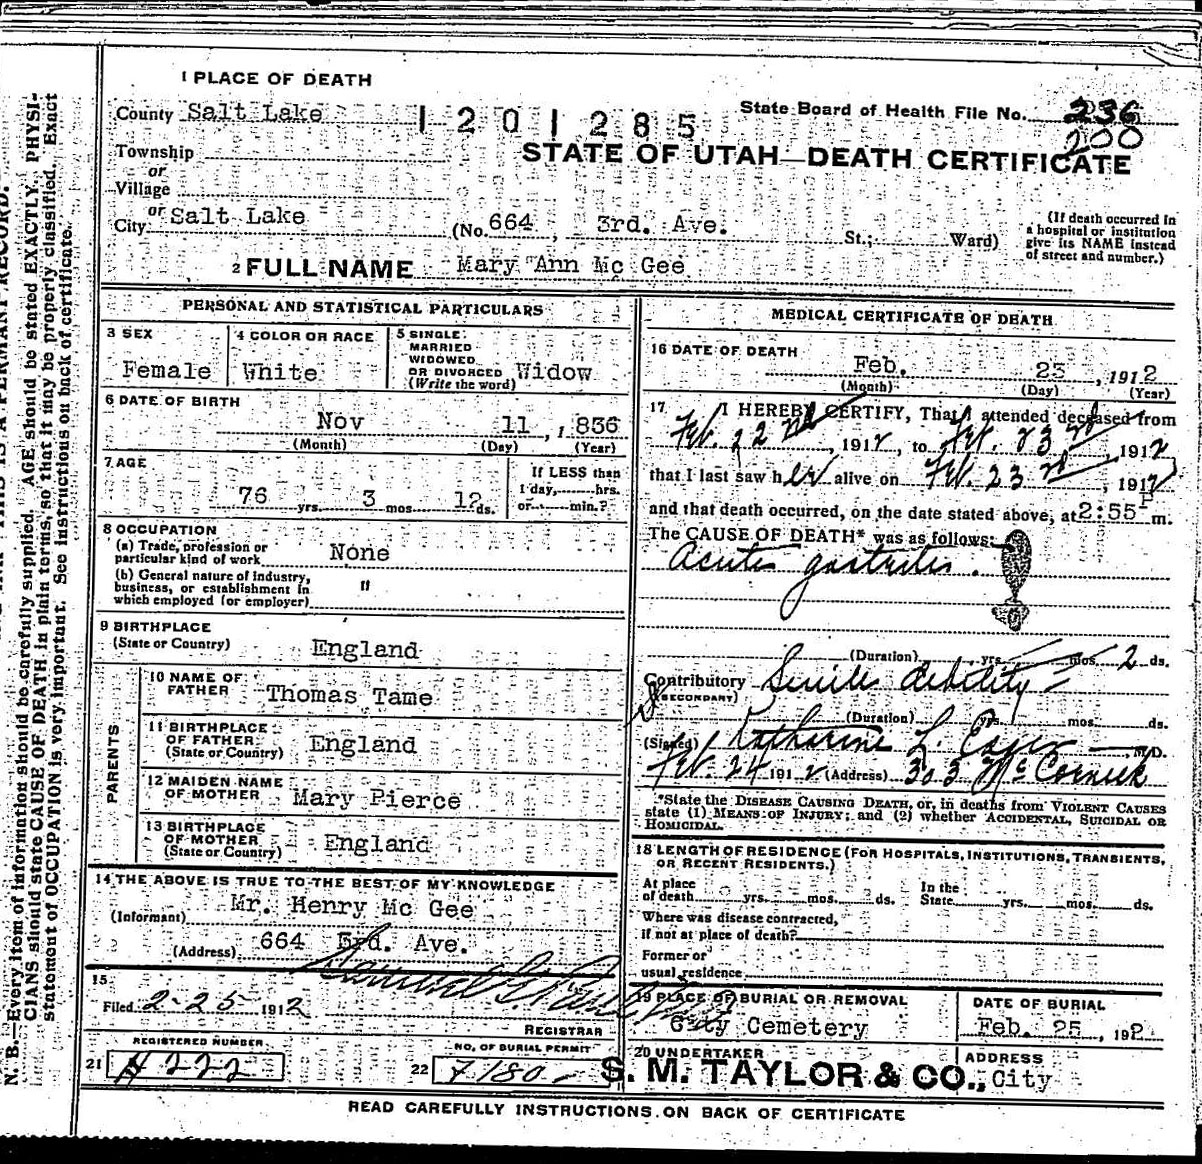 1 PLACE OF DEATH
County Salt Lake
1201285
State Board of Health File No. 236
200
Township
or
Village
or
City Salt Lake
STATE OF UTAH—DEATH CERTIFICATE
(No. 664, 3rd. Ave. St.; Ward)
(If death occurred in
a hospital or institution
give its NAME instead
of street and number.)
2 FULL NAME Mary Ann Mc Gee
PERSONAL AND STATISTICAL PARTICULARS
3 SEX
Female
4 COLOR OR RACE
White
5 SINGLE
MARRIED
WIDOWED
OR DIVORCED
(Write the word)
Widow
6 DATE OF BIRTH
Nov 11, 1836
(Month) (Day) (Year)
7 AGE
76 yrs. 3 mos. 12 ds.
If LESS than
1 day, hrs.
or min.?
8 OCCUPATION
(a) Trade, profession or
particular kind of work None
(b) General nature of industry,
business, or establishment in
which employed (or employer) "
9 BIRTHPLACE
(State or Country) England
PARENTS
10 NAME OF
FATHER Thomas Tame
11 BIRTHPLACE
OF FATHER
(State or Country) England
12 MAIDEN NAME
OF MOTHER Mary Pierce
13 BIRTHPLACE
OF MOTHER
(State or Country) England
14 THE ABOVE IS TRUE TO THE BEST OF MY KNOWLEDGE
(Informant) Mr. Henry Mc Gee
(Address) 664 3rd. Ave.
15
Filed 2-25 1912
REGISTRAR
REGISTERED NUMBER
21 222
NO. OF BURIAL PERMIT
22 7180
MEDICAL CERTIFICATE OF DEATH
16 DATE OF DEATH
Feb. 23, 1912
(Month) (Day) (Year)
17 I HEREBY CERTIFY, That I attended deceased from
Feb. 22nd 1912, to Feb. 23rd 1912
that I last saw her alive on Feb. 23rd, 1912
and that death occurred, on the date stated above, at 2:55 P m.
The CAUSE OF DEATH* was as follows:
Acute gastritis.
(Duration) yrs. mos. 2 ds.
Contributory Senile debility
(SECONDARY)
(Duration) yrs. mos. ds.
(Signed) Katharine L. M.D.
Feb. 24 1912 (Address) 303 McCornick
*State the DISEASE CAUSING DEATH, or, in deaths from VIOLENT CAUSES
state (1) MEANS OF INJURY; and (2) whether ACCIDENTAL, SUICIDAL OR
HOMICIDAL.
18 LENGTH OF RESIDENCE (FOR HOSPITALS, INSTITUTIONS, TRANSIENTS,
OR RECENT RESIDENTS.)
At place
of death yrs. mos. ds.
In the
State yrs. mos. ds.
Where was disease contracted,
if not at place of death?
Former or
usual residence
19 PLACE OF BURIAL OR REMOVAL
City Cemetery
DATE OF BURIAL
Feb. 25, 192
20 UNDERTAKER
S. M. TAYLOR & CO.,
ADDRESS
City
READ CAREFULLY INSTRUCTIONS ON BACK OF CERTIFICATE
N. B.—Every item of information should be carefully supplied. AGE should be stated EXACTLY. PHYSI-
CIANS should state CAUSE OF DEATH in plain terms, so that it may be properly classified. Exact
statement of OCCUPATION is very important. See instructions on back of certificate.